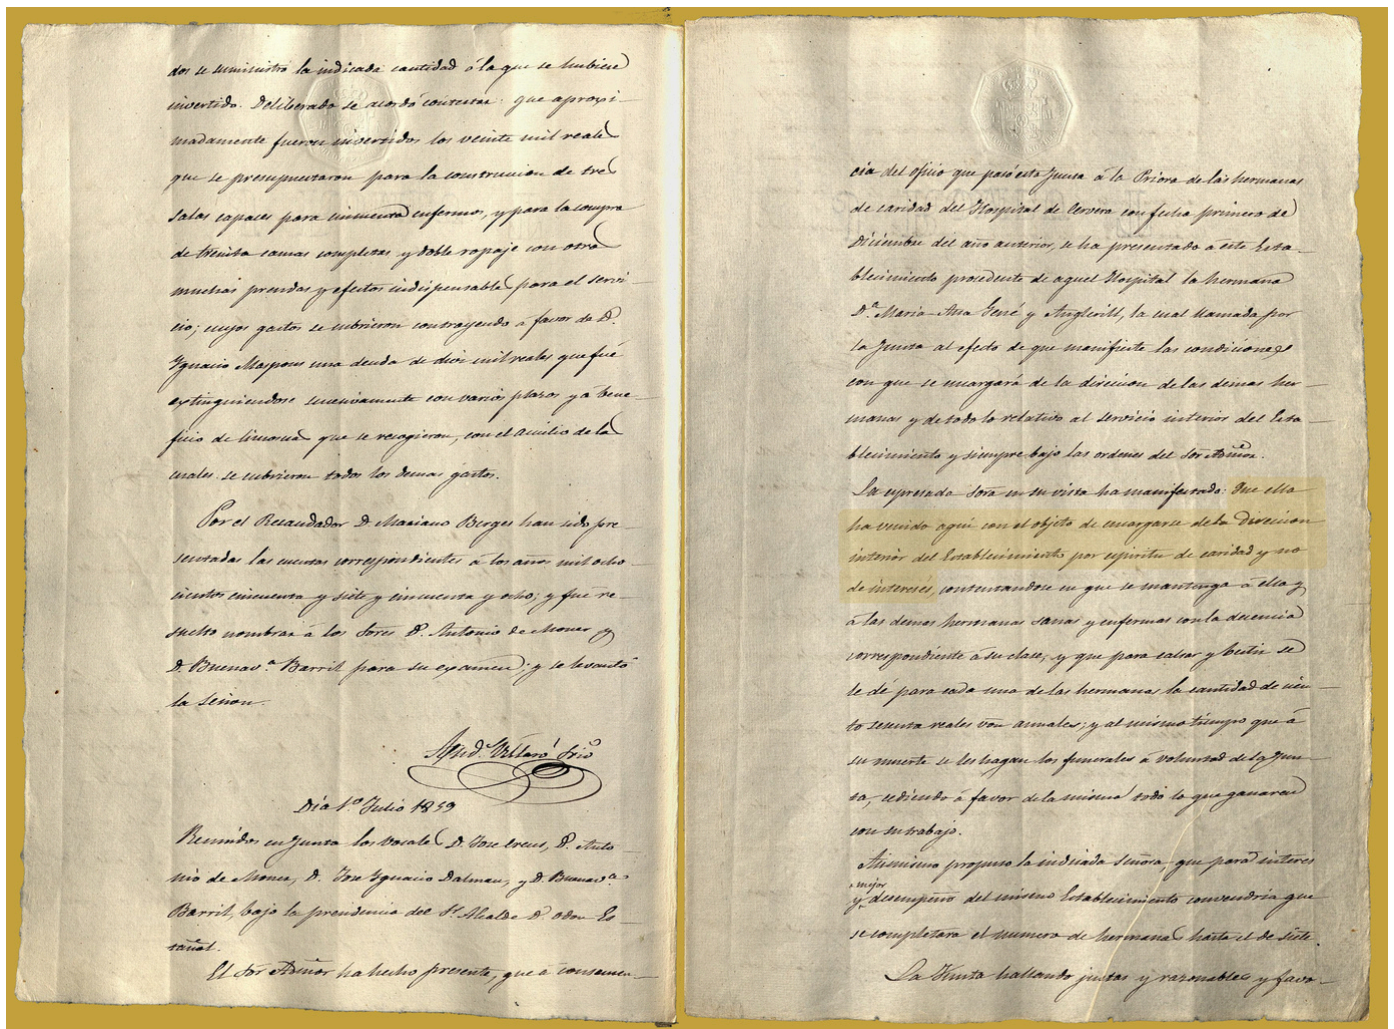 dos se suministró la indicada cantidad ó la que se hubiese
invertido. Deliberado se acordó contestar: que aproxi-
madamente fueron invertidos los veinte mil reales
que se presupuestaron para la construccion de tres
salas capaces para cincuenta enfermos, y para la compra
de treinta camas completas y doble ropaje con otras
muchas prendas y efectos indispensables para el servi-
cio; cuyos gastos se cubrieron contrayendo á favor de D.
Ignacio Maspons una deuda de diez mil reales que fué
extinguiendose sucesivamente con varios plazos y á bene-
ficio de limosnas que se recogieron, con el auxilio de las
cuales se cubrieron todos los demas gastos.
Por el Recaudador D. Mariano Berges han sido pre-
sentadas las cuentas correspondientes á los años mil ocho-
cientos cincuenta y siete y cincuenta y ocho; y fue re-
suelto nombrar á los Sores D. Antonio de Moner y
D. Buenavª Barril para su examen; y se levantó
la sesion.
Día 1º Julio 1859
Reunidos en Junta los vocales D. Jose Creus, D. Anto-
nio de Moner, D. Jose Ignacio Dalmau, y D. Buenavª
Barril, bajo la presidencia del Sr Alcalde D. Odon Es-
tañol.
El Sor Admor ha hecho presente, que á consecuen-
cia del oficio que pasó esta Junta á la Priora de las hermanas
de caridad del Hospital de Cervera con fecha primero de
Diciembre del año anterior, se ha presentado á este Esta-
blecimiento procedente de aquel Hospital la hermana
Dª Maria Ana Gené y Anglerill, la cual llamada por
la Junta al efecto de que manifieste las condiciones
con que se encargará de la direccion de las demas her-
manas y de todo lo relativo al servicio interior del Esta-
blecimiento y siempre bajo las ordenes del Sor Admor.
La espresada Sora en su vista ha manifestado: Que ella
ha venido aquí con el objeto de encargarse de la Direccion
interior del Establecimiento por espiritu de caridad y no
de interés, contentandose en que se mantenga á ella y
á las demas hermanas sanas y enfermas con la decencia
correspondiente á su clase; y que para calsar y bestir se
le dé para cada una de las hermanas la cantidad de cien-
to sesenta reales von annales; y al mismo tiempo que á
su muerte se les hagan los funerales á voluntad de la Jun-
ta, cediendo á favor de la misma todo lo que ganaren
con su trabajo.
Asimismo propuso la indicada señora, que para interes
y mejor desempeño del mismo Establecimiento convendria que
se completara el numero de hermanas hasta el de siete.
La Junta hallando justas y razonables y favo-